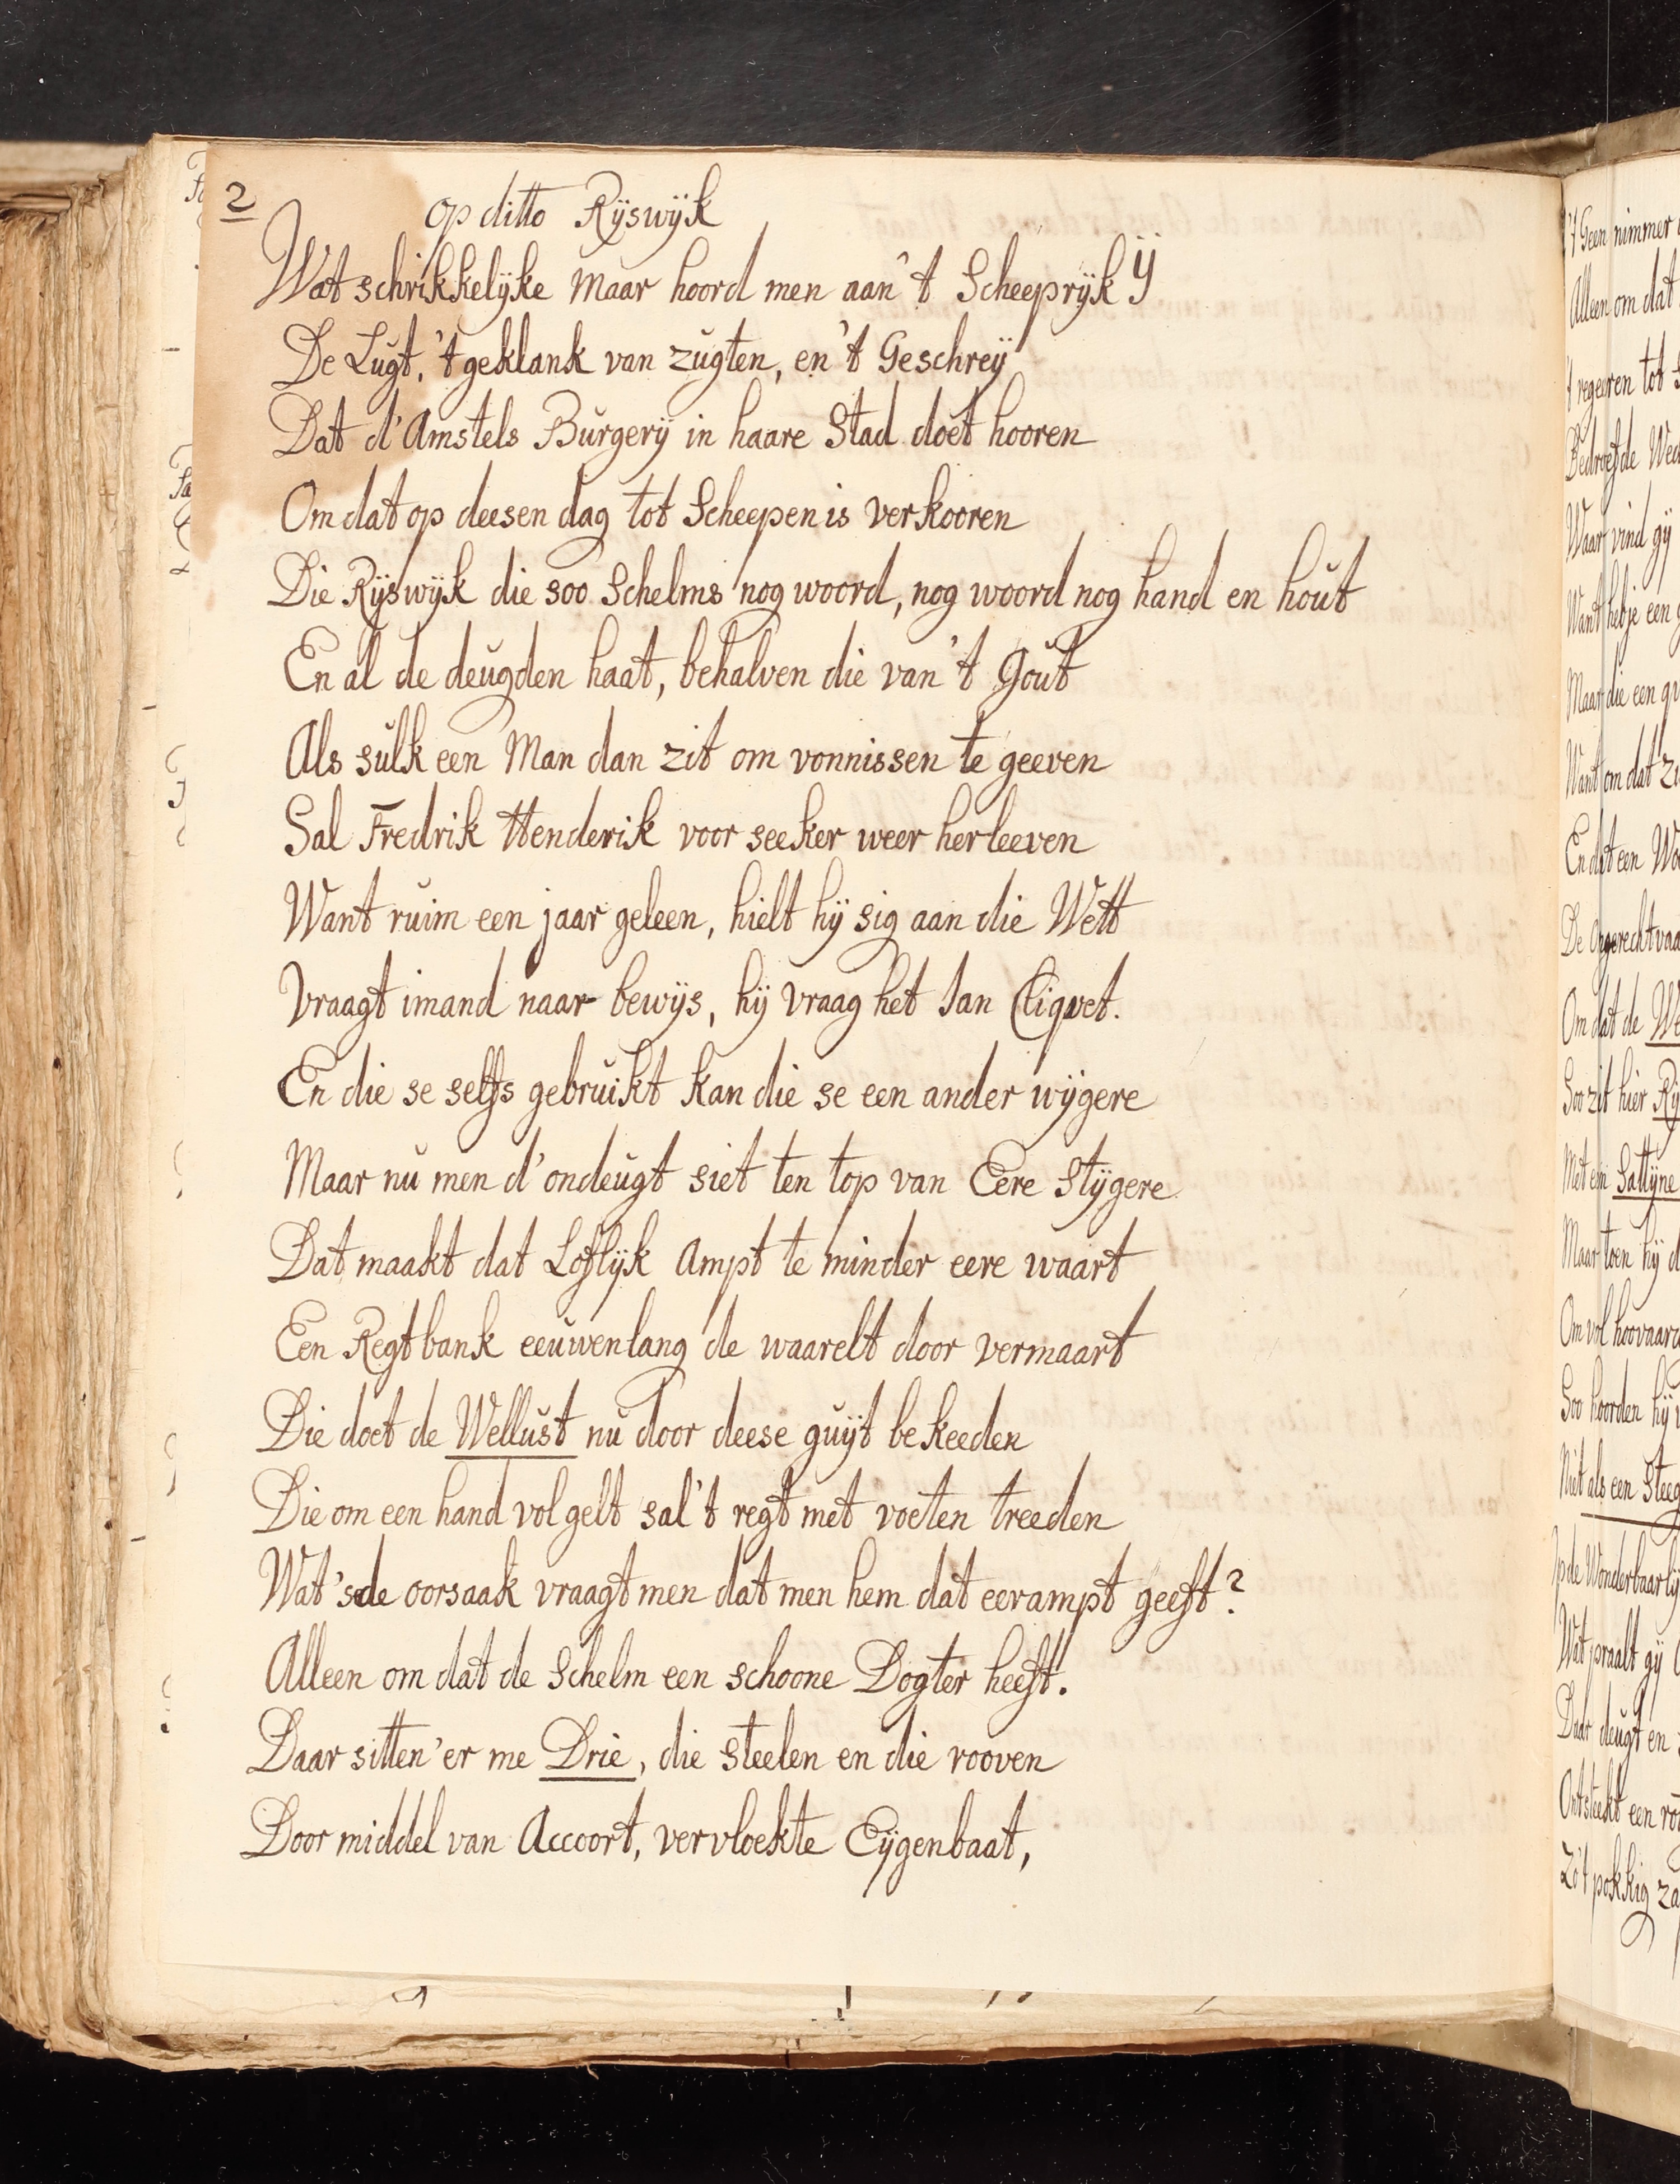 2
op ditto Rijswijk
Wat schrikkelijke Maar hoord men aan't Scheeprijk Y
De Lugt, 't geklank van zugten, en 't Geschreij
Dat d'Amstels Burgerij in haare Stad doet hooren
Om dat op deesen dag tot Scheepen is verkooren
Die Rijswijk die soo Schelms nog woord, nog woord nog hand en hout
En al de deugden haat, behalven die van 't Gout
Als sulk een Man dan zit om vonnissen te geeven
Sal Fredrik Henderik voor seeker weer herleeven
Want ruim een jaar geleen, hielt hij sig aan die Wett
Vraagt imand naar bewijs, hij vraag het Jan Cliquet.
En die se selfs gebruikt kan die se een ander wijgere
Maar nu men d'ondeugt siet ten top van Eere Stijgere
Dat maakt dat Loflijk Ampt te minder eere waart
Een Regtbank eeuwenlang de waarelt door vermaart
Die doet de Wellust nu door deese guijt bekeeden
Die om een hand vol gelt sal't regt met voeten treeden
Wat's de oorsaak vraagt men dat men hem dat eerampt geeft?
Alleen om dat de Schelm een schoone Dogter heeft.
Daar sitten'er me Drie, die steelen en die rooven
Door middel van Accoort, vervloekte Eijgenbaat,
't Geen nimmer
Alleen om dat
't regeeren tot
Bedroefde
Waar vind gij
Want hebje een
Maar die een
Want om dat
En dat een
De Ongerechtvaa
Om dat de
Soo zit hier
Met een Sattijne
Maar toen hij
Om vol hoovaard
Soo hoorden hij
Niet als een Steeg
Op de Wonderbaarlij
Wat praalt gij
Daar deugt en
Ontsteekt een
Zo't pokkig